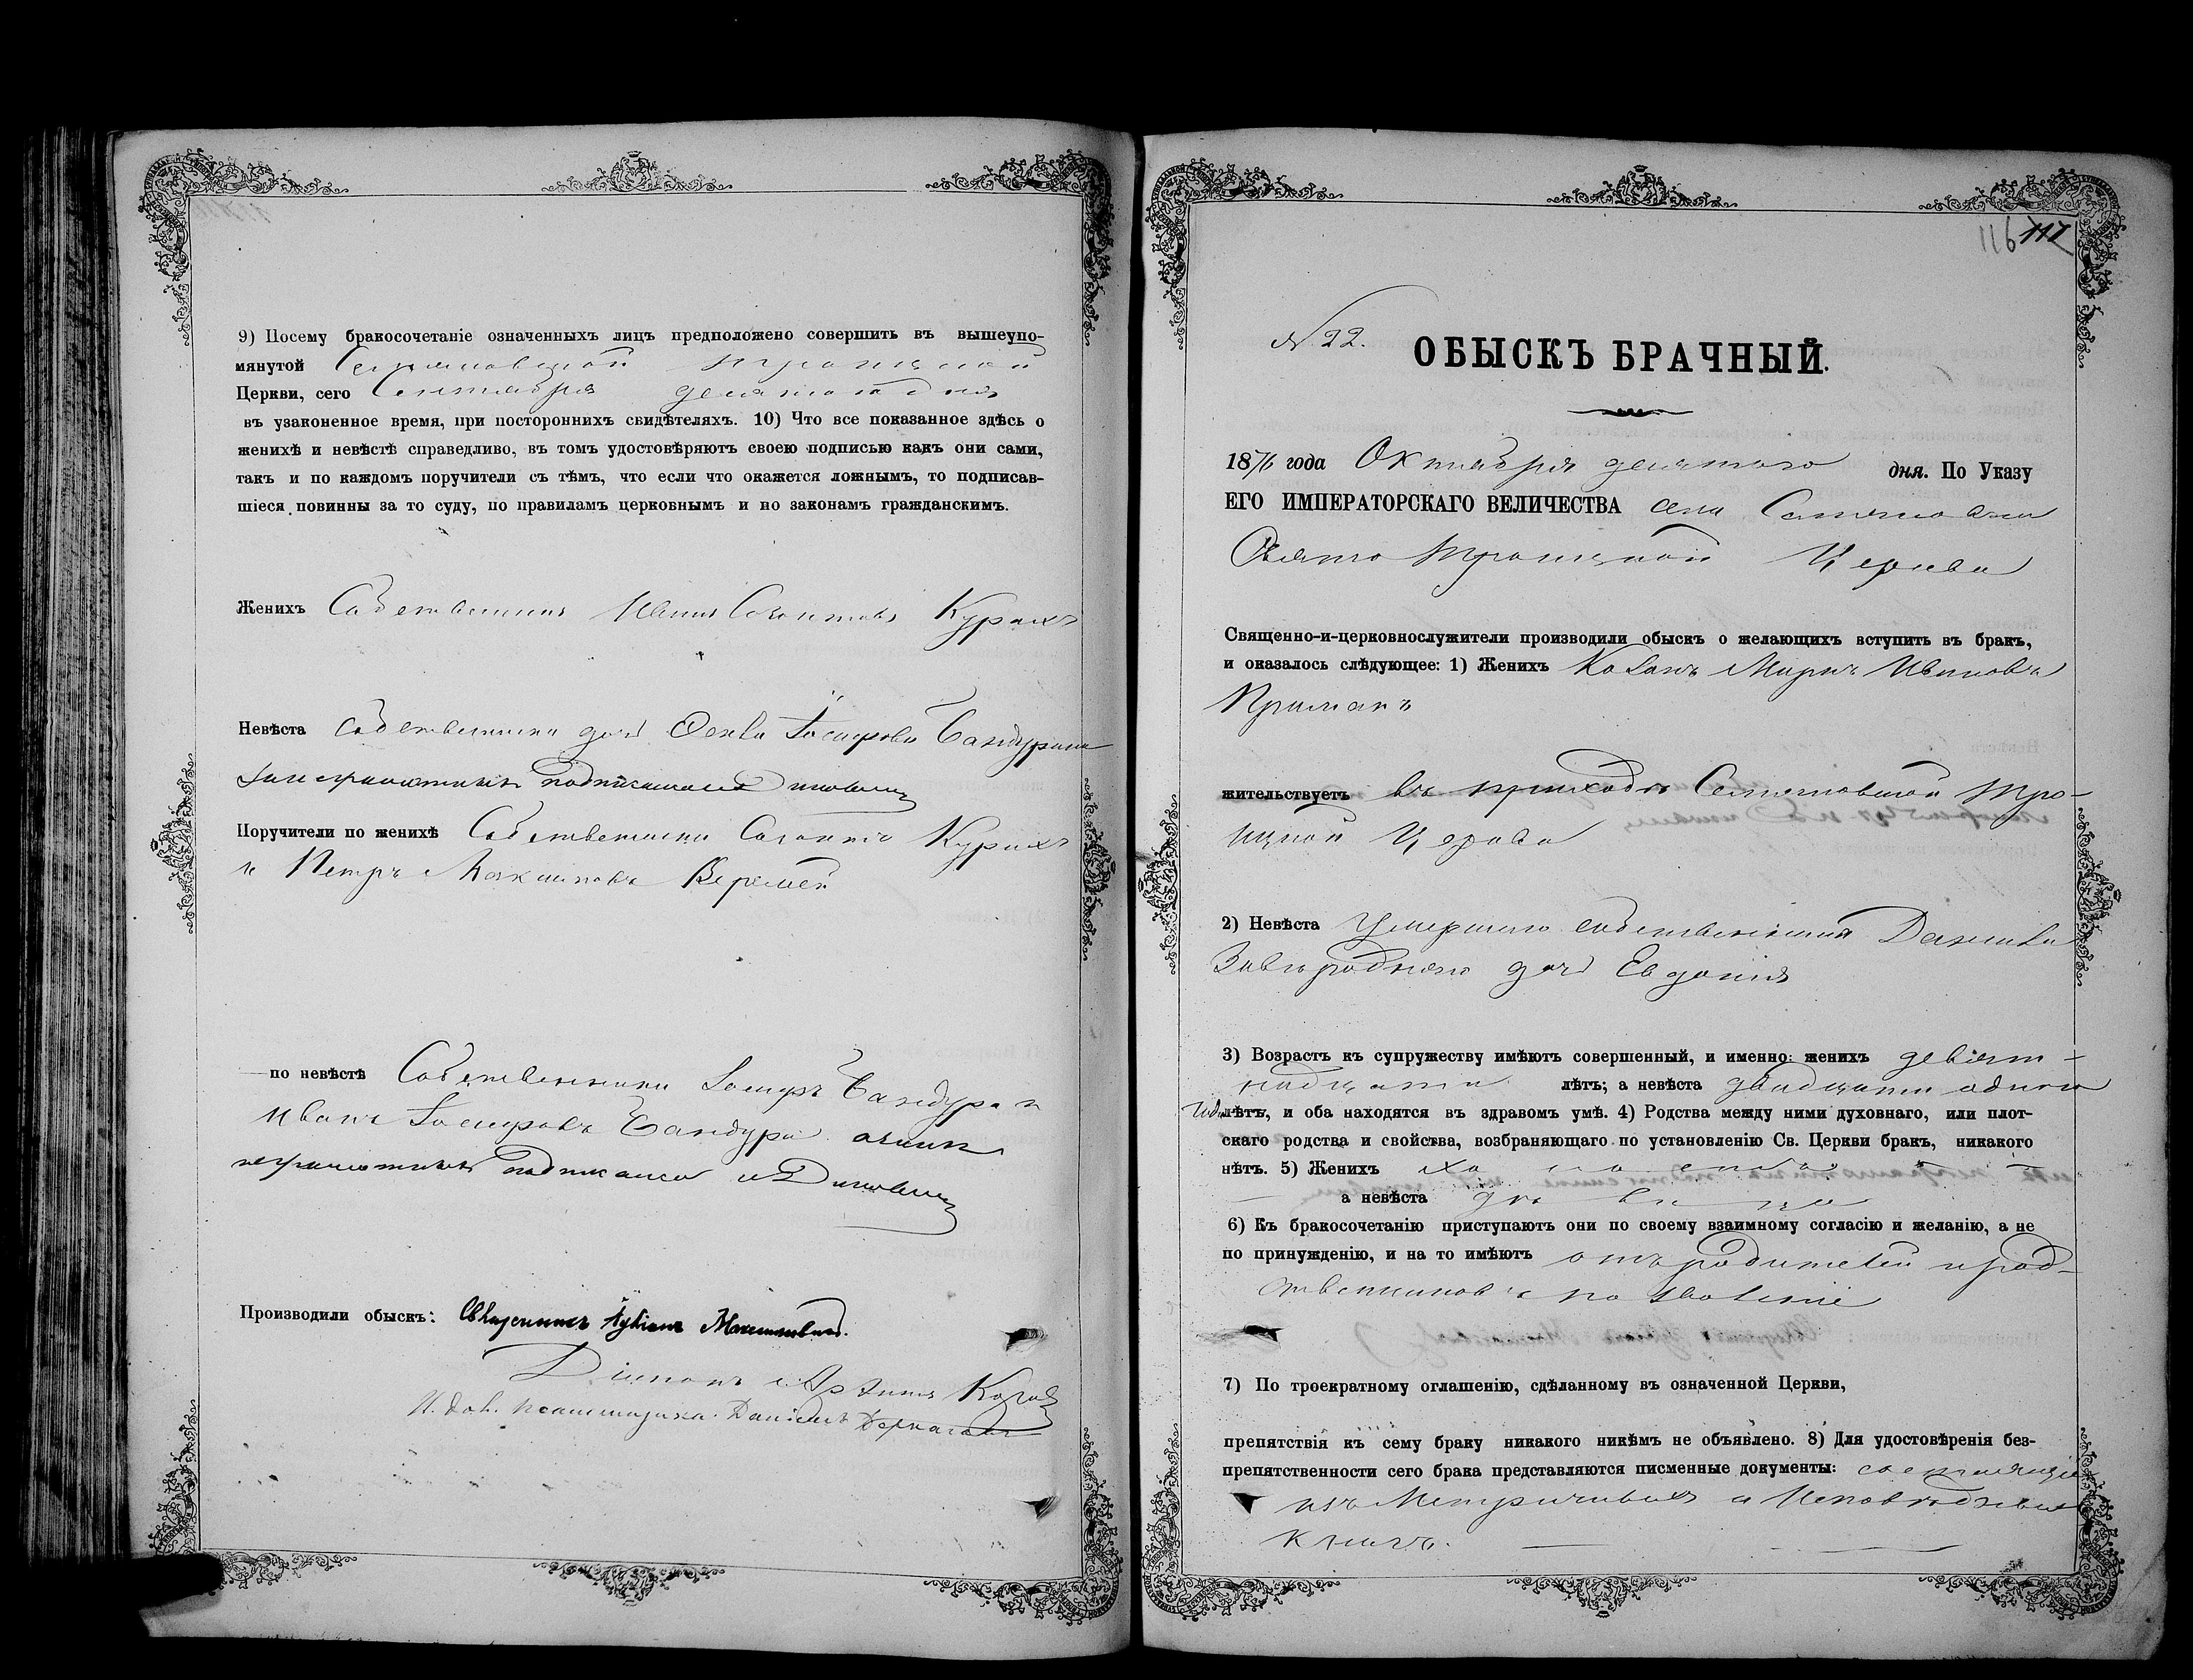 9) Посему бракосочетаніе означенныхъ лицъ предположено совершить въ вышеупо-
мянутой Семяновской Троицкой
Церкви, сего Сентября дня
въ узаконенное время, при постороннихъ свидѣтеляхъ. 10) Что все показанное здѣсь о
женихѣ и невѣстѣ справедливо, въ томъ удостовѣряютъ своею подписью какъ они сами,
такъ и по каждомъ поручители съ тѣмъ, что если что окажется ложнымъ, то подписав-
шіеся повинны за то суду, по правиламъ церковнымъ и по законамъ гражданскимъ.
Женихъ Собственникъ Иванъ Созонтовъ Курихъ
Невѣста собственника дочь Іосифова Бандурина
неграмотныхъ подписался
Поручители по женихѣ Собственники Созонтъ Курихъ
и Петръ Максимовъ Веремей
по невѣстѣ Собственники Іосифъ Бандура и
Иванъ Іосифовъ Бандура а за нихъ
неграмотныхъ подписался
Производили обыскъ: Священникъ
Діаконъ
И. дол. псаломщика Даніилъ
116 117
N 22.
ОБЫСКЪ БРАЧНЫЙ.
1876 года Октября десятого дня. По Указу
ЕГО ИМПЕРАТОРСКАГО ВЕЛИЧЕСТВА села Семяновки
Свято Троицкой Церкви
Священно-и-церковнослужители производили обыскъ о желающихъ вступить въ бракъ,
и оказалось слѣдующее: 1) Женихъ Козакъ Маркъ Ивановъ
Примакъ
жительствуетъ въ приходѣ Семяновской Тро-
ицкой Церкви
2) Невѣста Умершего собственника Данила
Завгороднего дочь Евдокія
3) Возрастъ къ супружеству имѣютъ совершенный, и именно: женихъ девят-
надцати лѣтъ; а невѣста двадцати одного
года лѣтъ, и оба находятся въ здравомъ умѣ. 4) Родства между ними духовнаго, или плот-
скаго родства и свойства, возбраняющаго по установленію Св. Церкви бракъ, никакого
нѣтъ. 5) Женихъ холостой
а невѣста дѣвица
6) Къ бракосочетанію приступаютъ они по своему взаимному согласію и желанію, а не
по принужденію, и на то имѣютъ отъ родителей и род-
ственниковъ позволеніе
7) По троекратному оглашенію, сдѣланному въ означенной Церкви,
препятствія къ сему браку никакого никѣмъ не объявлено. 8) Для удостовѣренія без-
препятственности сего брака представляются писменные документы:
изъ Метричныхъ и Исповѣдныхъ
книгъ.